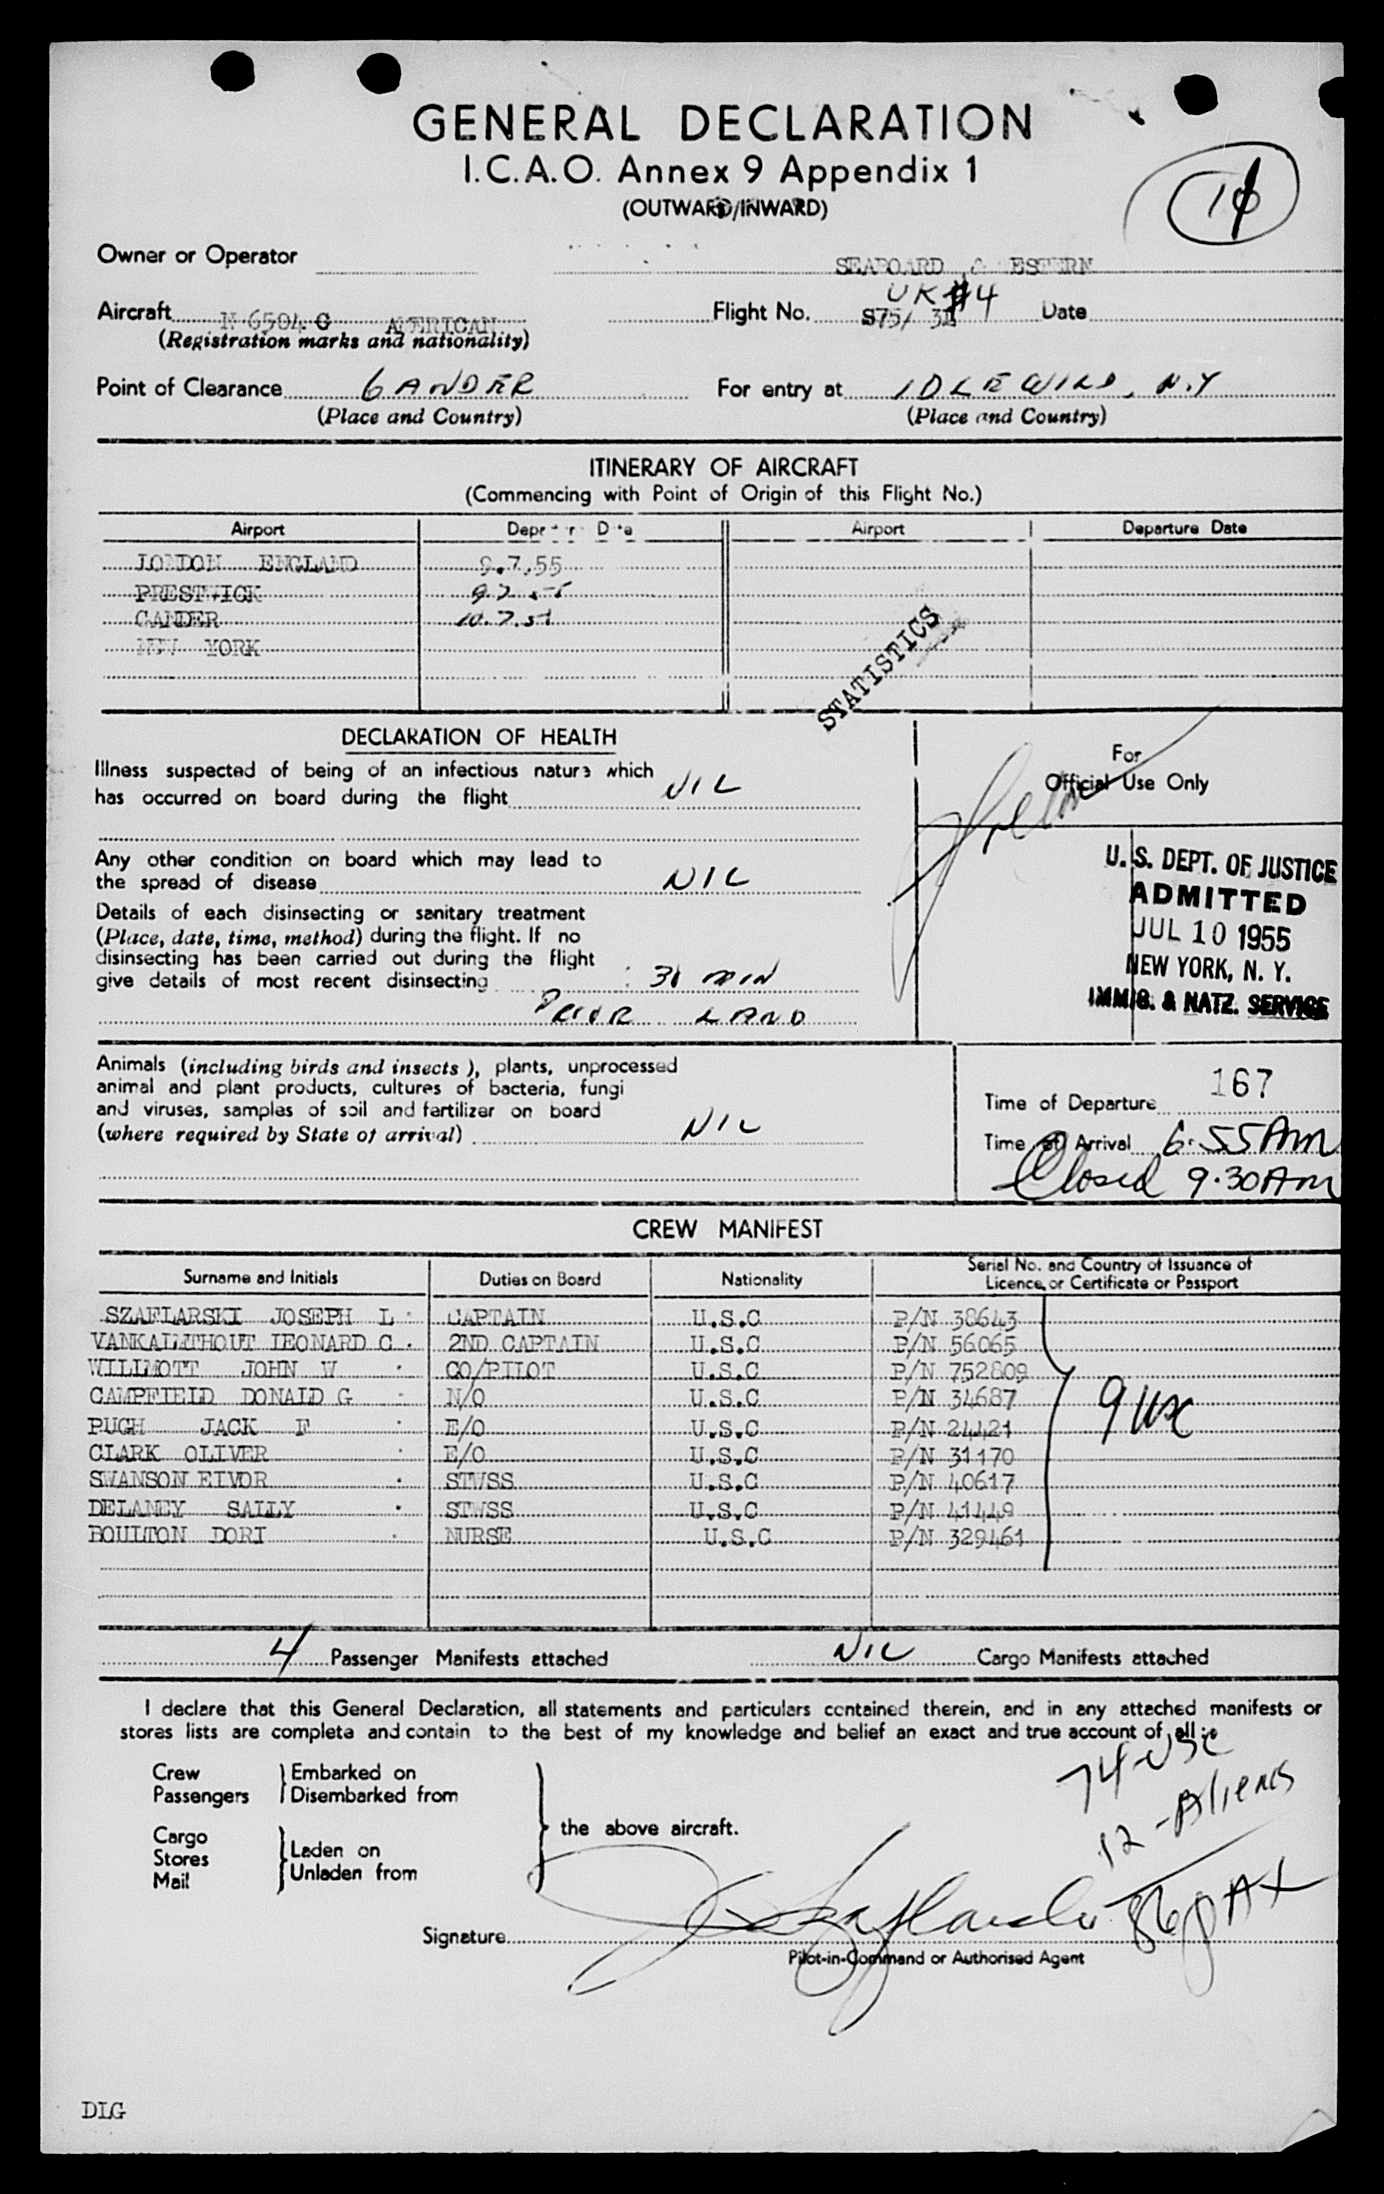 GENERAL DECLARATION
I.C.A.O. Annex 9 Appendix 1
(OUTWARD/INWARD)
Owner or Operator SEABOARD & ESTERN
UK#4
Aircraft N 6504 C AMERICAN Flight No. S75/ Date
(Registration marks and nationality)
Point of Clearance GANDER For entry at IDLEWILD, N.Y
(Place and Country) (Place and Country)
ITINERARY OF AIRCRAFT
(Commencing with Point of Origin of this Flight No.)
Airport Departure Date Airport Departure Date
LONDON ENGLAND 9.7.55
PRESTWICK 9.7.55
GANDER 10.7.55
NEW YORK
STATISTICS
DECLARATION OF HEALTH
Illness suspected of being of an infectious nature which
has occurred on board during the flight NIL
Any other condition on board which may lead to
the spread of disease NIL
Details of each disinsecting or sanitary treatment
(Place, date, time, method) during the flight. If no
disinsecting has been carried out during the flight
give details of most recent disinsecting 30 MIN
PRIOR LAND
For
Official Use Only
U.S. DEPT. OF JUSTICE
ADMITTED
JUL 10 1955
NEW YORK, N. Y.
IMMIG. & NATZ. SERVICE
Animals (including birds and insects), plants, unprocessed
animal and plant products, cultures of bacteria, fungi
and viruses, samples of soil and fertilizer on board
(where required by State of arrival) NIL
167
Time of Departure
Time of Arrival 6:55 Am
Closed 9.30 Am
CREW MANIFEST
Surname and Initials Duties on Board Nationality Serial No. and Country of Issuance of
Licence, or Certificate or Passport
SZAFLARSKI JOSEPH L CAPTAIN U.S.C P/N 38643
VANKALMTHOUT LEONARD C 2ND CAPTAIN U.S.C P/N 56065
WILLMOTT JOHN W CO/PILOT U.S.C P/N 752809
CAMPFIELD DONALD G N/O U.S.C P/N 34687
PUGH JACK F E/O U.S.C P/N 24421
CLARK OLIVER E/O U.S.C P/N 31170
SWANSON EIVOR STWSS U.S.C P/N 40617
DELANEY SALLY STWSS U.S.C P/N 41449
BOULTON DORI NURSE U.S.C P/N 329461
9 usc
4 Passenger Manifests attached NIL Cargo Manifests attached
I declare that this General Declaration, all statements and particulars contained therein, and in any attached manifests or
stores lists are complete and contain to the best of my knowledge and belief an exact and true account of all :•
Crew Embarked on
Passengers Disembarked from
the above aircraft.
Cargo
Stores Laden on
Mail Unladen from
74-USC
12-Aliens
86 pAX
Signature J Szaflarski
Pilot-in-Command or Authorised Agent
DLG